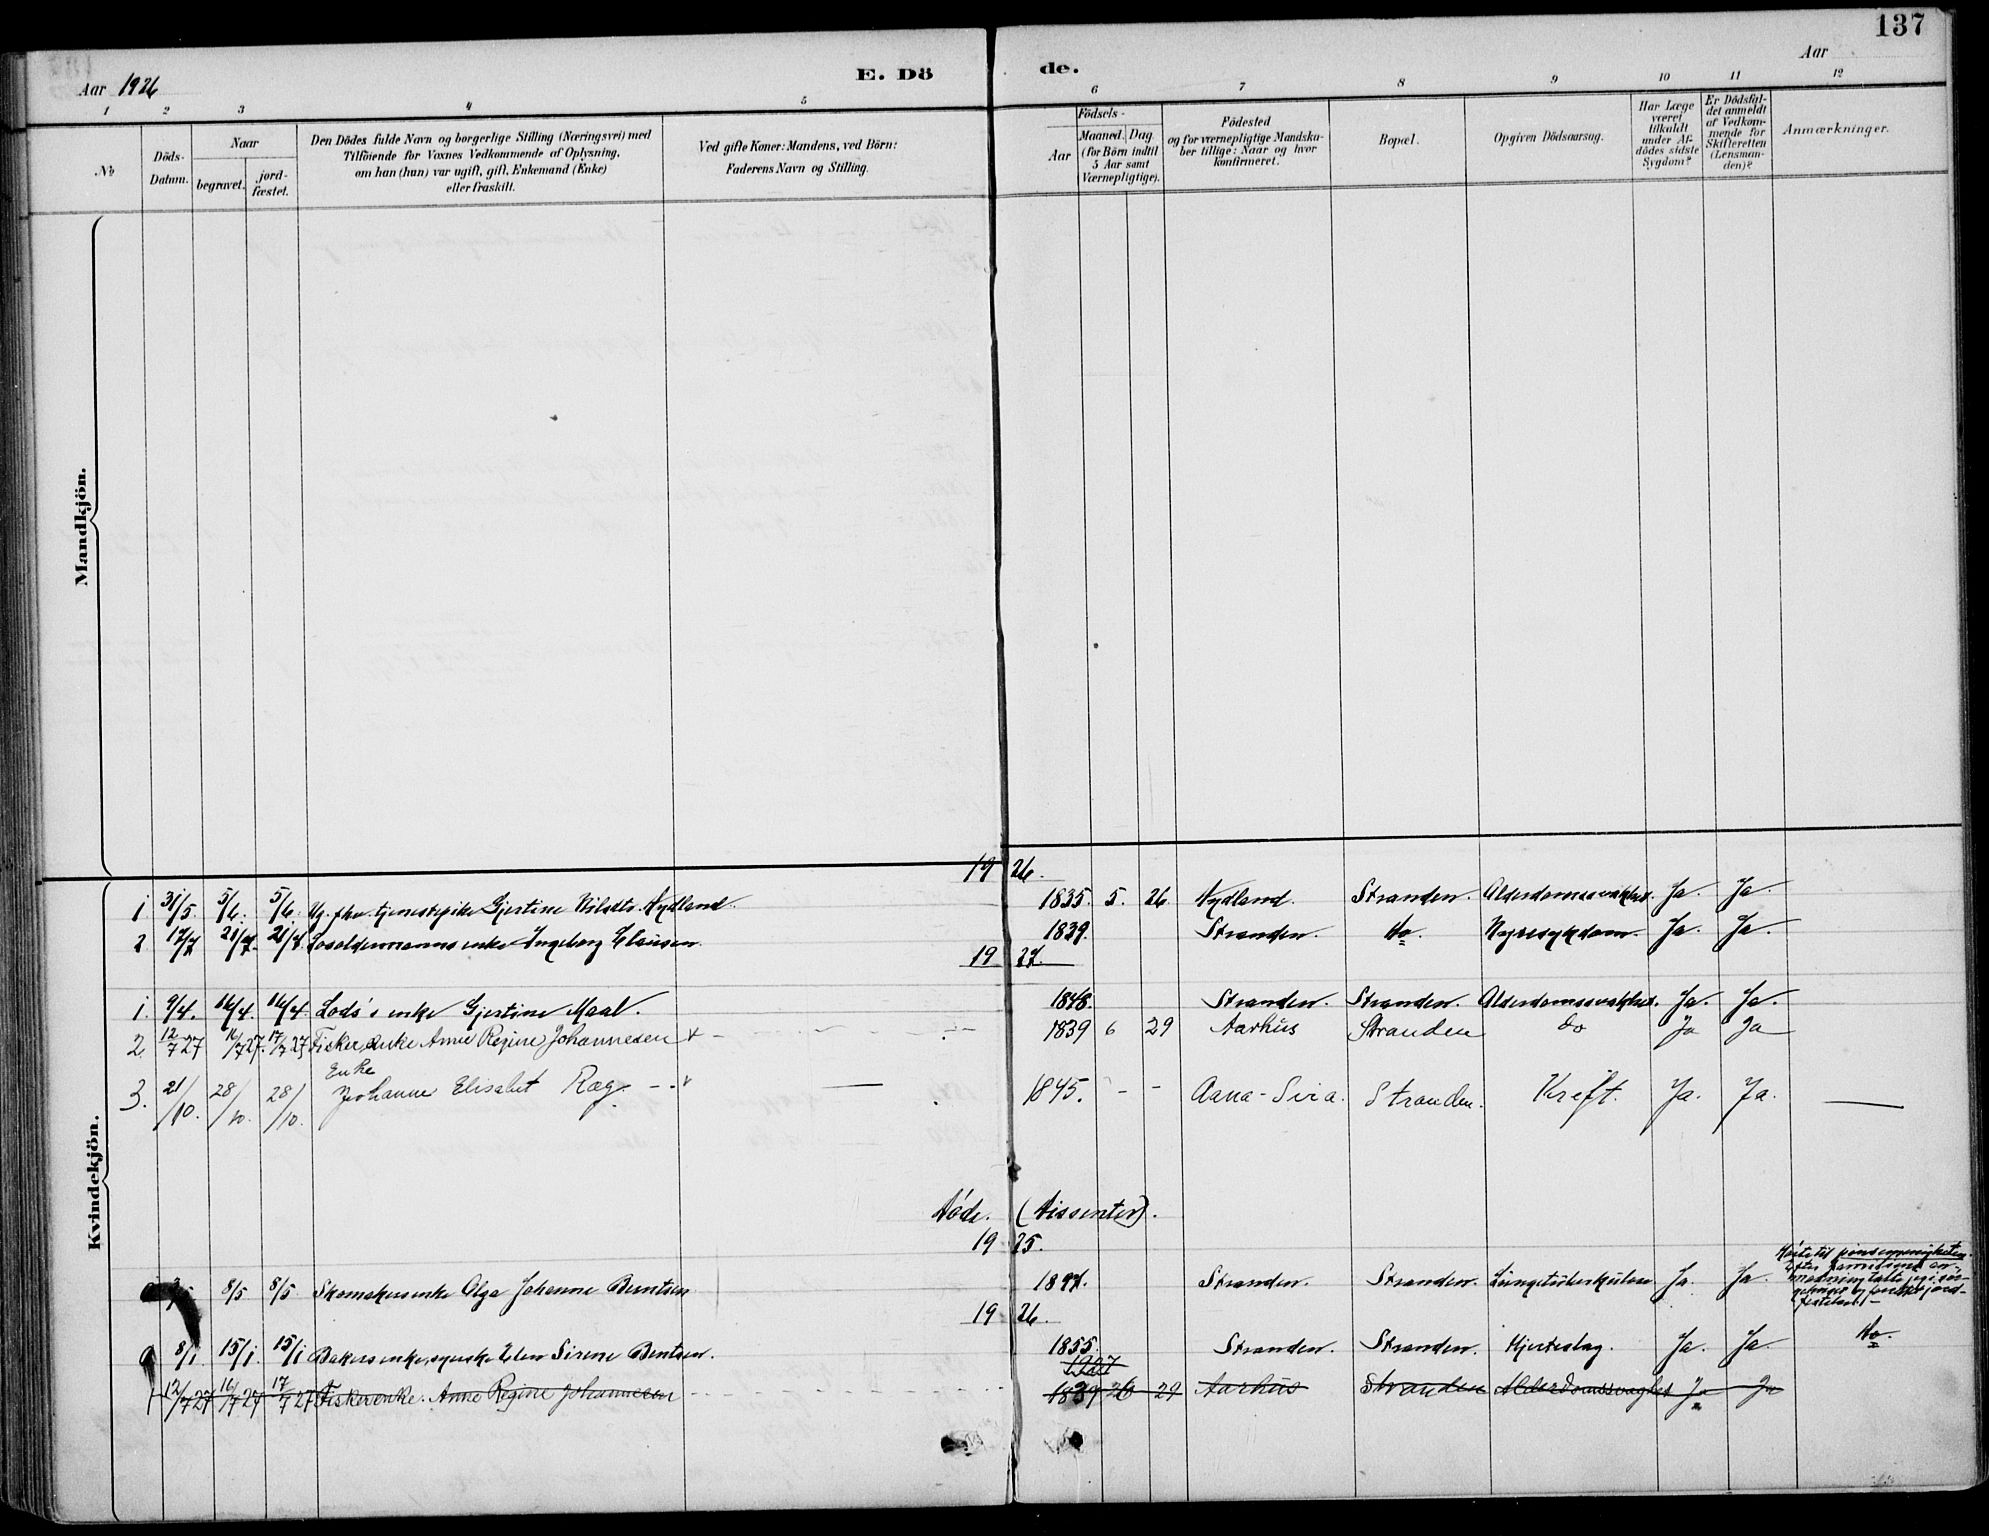 137
Aar 1926
E. Dö
de.
Aar
1 2 3 4 5 6 7 8 9 10 11 12
No
Döds-
Datum.
Naar
begravet.
jord-
fæstet.
Den Dödes fulde Navn og borgerlige Stilling (Næringsvei) med
Tilföiende for Voxnes Vedkommende af Oplysning,
om han (hun) var ugift, gift, Enkemand (Enke)
eller fraskilt.
Ved gifte Koner: Mandens, ved Börn:
Faderens Navn og Stilling.
Födsels-
Aar
Maaned. Dag
(for Börn indtil
5 Aar samt
Værnepligtige).
Födested
og for værnepligtige Mandska-
ber tillige: Naar og hvor
konfirmeret.
Bopæl.
Opgiven Dödsaarsag.
Har Læge
været
tilkaldt
under Af-
dödes sidste
Sygdom?
Er Dödsfal-
det anmeldt
af Vedkom-
mende for
Skifteretten
(Lensman-
den)?
Anmærkninger.
Mandkjön.
Kvindekjön.
1926.
1 31/5 5/6. 5/6. Ug. fhv. tjenestepike Gjertine Nydland. 1835. 5. 26 Nydland. Stranden. Alderdomssvakhet. Ja. Ja.
2 17/7 21/7. 21/7. Losoldermannsenke Ingeborg Clausen. 1839. Stranden. Do. Nyresykdom. Ja. Ja.
1927.
1. 9/4. 16/4. 16/4 Lods's enke Gjertine Maal. 1848. Stranden. Stranden. Alderdomssvakhet. Ja. Ja.
2 12/7 27 16/7 27. 17/7 27 Fiskerenke Anne Regine Johannesen 1839 6 29 Aarhus Stranden do Ja Ja
3. 21/10. 28/10. 28/10. Enke
Johanne Elisabet Ræg 1845. - - Aana-Sira. Stranden. Kreft. Ja. Ja.
Döde. (Dissenter).
1925.
8/5 8/5 Skomakersenke Olga Johanne Berntsen 1897. Stranden. Stranden. Lungetuberkulose Ja. Ja.
Hörte til pinsemenigheten.
1926.
8/1 15/1. 15/1 Bakersenke, Elen Sirene Bentsen. 1855. Stranden. Stranden. Hjerteslag. Ja. Ja. Do.
1927
12/7 27 16/7 27 17/7 27 Fiskerenke. Anne Regine Johannesen 1839 6 29 Aarhus Stranden Alderdomssvaghet Ja Ja